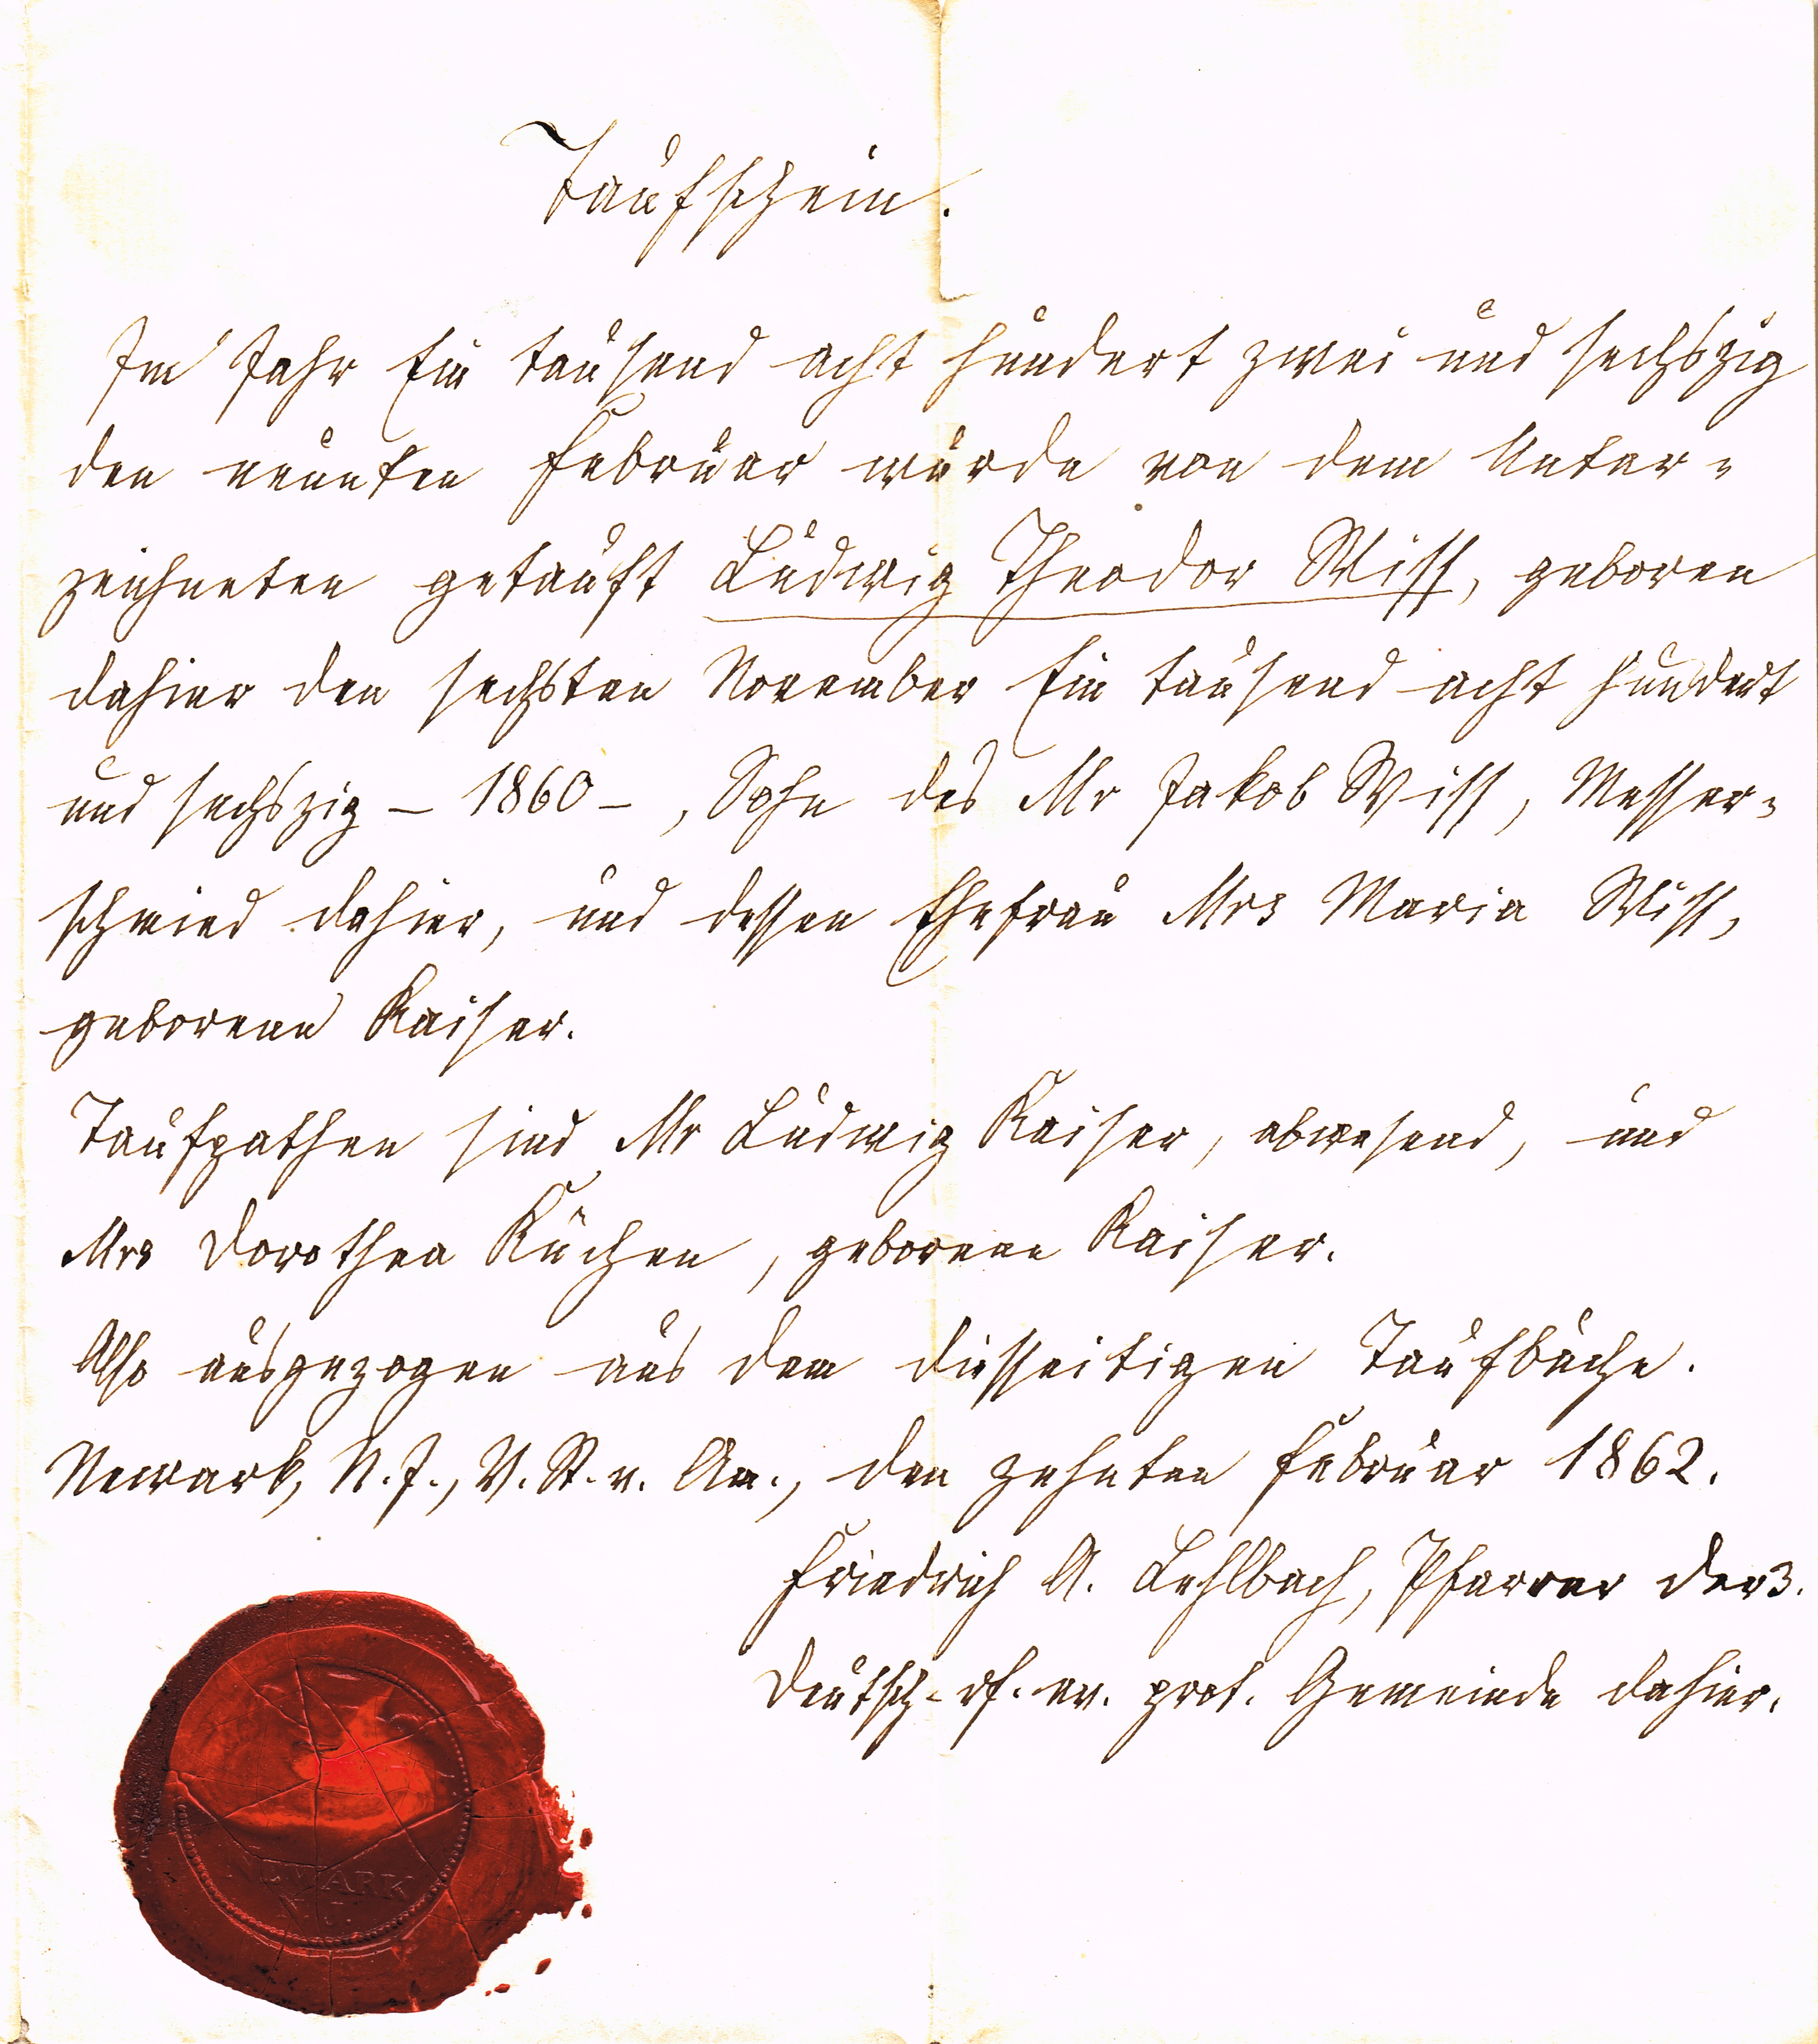 Taufschein.
Im Jahr Ein tausend acht hundert zwei und sechszig
den neunten Februar wurde von dem Unter-
zeichneten getauft Ludwig Theodor Wiss, geboren
dahier den sechsten November Ein tausend acht hundert
und sechszig – 1860 – , Sohn des Mr Jakob Wiss, Messer-
schmied dahier, und dessen Ehefrau Mrs Maria Wiss,
geborene Kaiser.
Taufpathen sind Mr Ludwig Kaiser, abwesend, und
Mrs Dorothea Küchen, geborene Kaiser.
Also ausgezogen aus dem diesseitigen Taufbuche.
Newark, N. J., V. St. v. Am., den zehnten Februar 1862.
Friedrich A. Lehlbach, Pfarrer der 3.
deutsch- rf. ev. prot. Gemeinde dahier.
NEWARK
N. J.